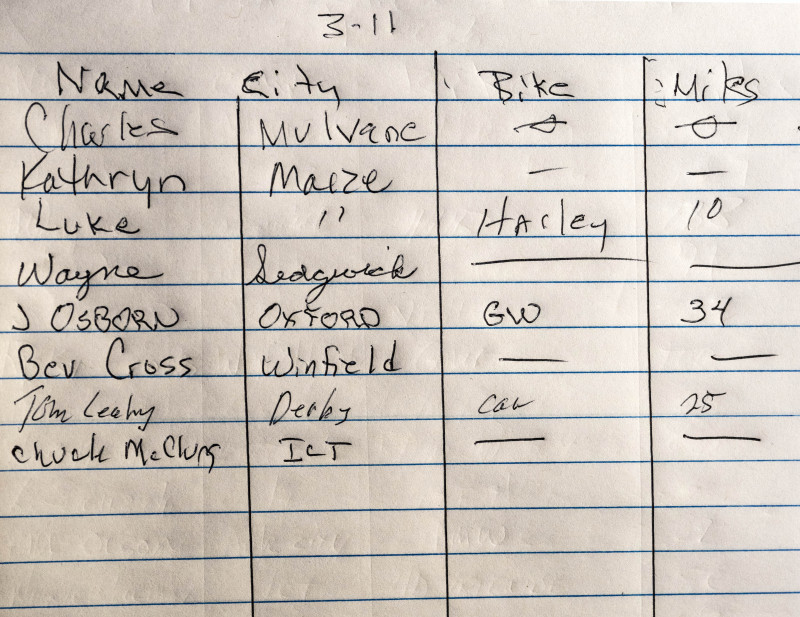 3-11
Name City Bike Miles
Charles Mulvane 0 0
Kathryn Maize — —
Luke " Harley 10
Wayne Sedgwick — —
J OSBORN OXFORD GW 34
Bev Cross Winfield — —
Tom Leahy Derby car 25
Chuck McClung ICT — —